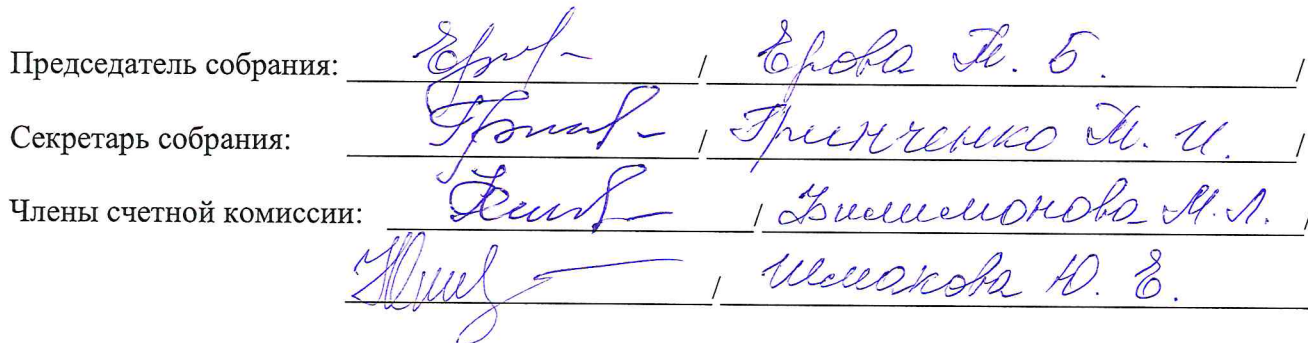 Председатель собрания: / Ерова Т. Б. /
Секретарь собрания: / Гринченко Т. И. /
Члены счетной комиссии: / М. Л. /
/ Шмакова Ю. Е.